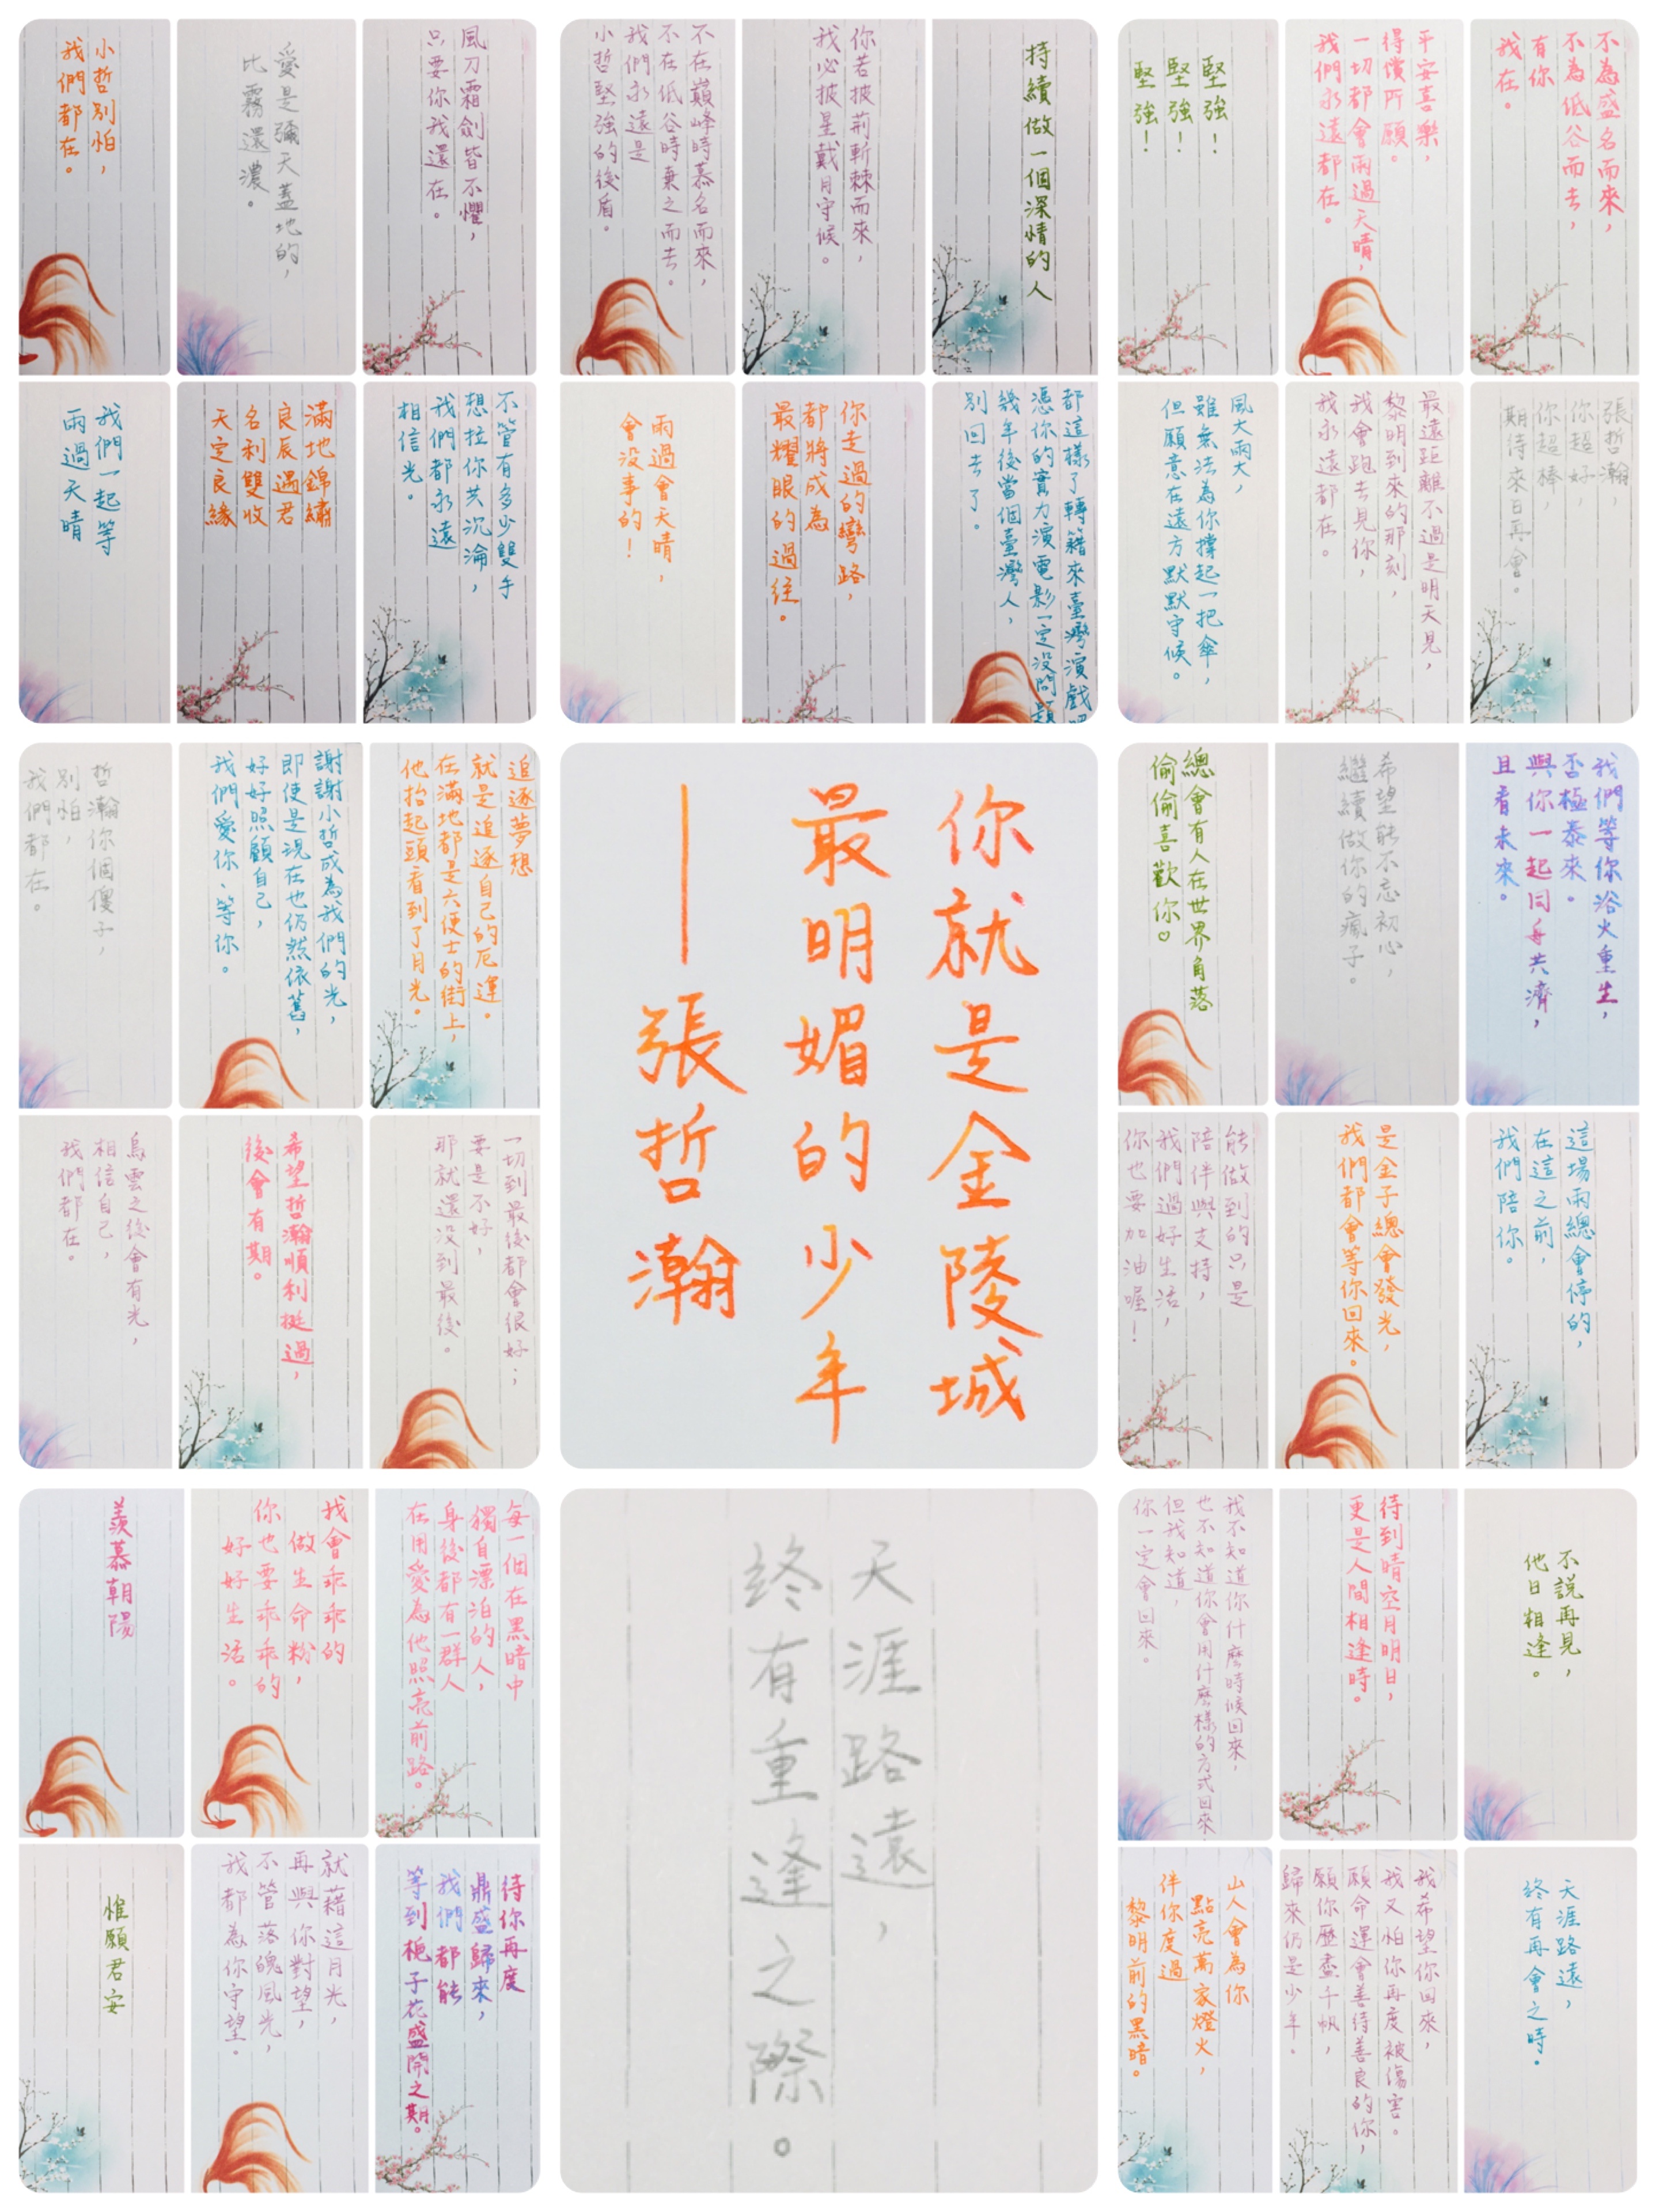 小哲別怕，
我們都在。
愛是彌天蓋地的，
比霧還濃。
風刀霜劍皆不懼，
只要你我還在。
我們一起等
雨過天晴
滿地錦繡
良辰遇君
名利雙收
天定良緣
不管有多少雙手
想拉你共沉淪，
我們都永遠
相信光。
不在巔峰時慕名而來，
不在低谷時棄之而去。
我們永遠是
小哲堅強的後盾。
你若披荊斬棘而來，
我必披星戴月守候。
持續做一個深情的人
雨過會天晴，
會沒事的！
你走過的彎路，
都將成為
最耀眼的過往。
都這樣了轉籍來臺灣演戲
憑你的實力演電影一定沒問題
幾年後當個臺灣人，
別回去了。
堅強！
堅強！
堅強！
平安喜樂，
得償所願。
一切都會雨過天晴，
我們永遠都在。
不為盛名而來，
不為低谷而去，
有你
我在。
風大雨大，
雖無法為你撐起一把傘，
但願意在遠方默默守候。
最遠距離不過是明天見，
黎明到來的那刻，
我會跑去見你，
我永遠都在。
張哲瀚，
你超好，
你超棒，
期待來日再會。
哲瀚你個傻子，
別怕，
我們都在。
謝謝小哲成為我們的光，
即使是現在也仍然依舊，
好好照顧自己，
我們愛你、等你。
追逐夢想
就是追逐自己的厄運。
在滿地都是六便士的街上，
他抬起頭看到了月光。
烏雲之後會有光，
相信自己，
我們都在。
希望哲瀚順利挺過，
後會有期。
一切到最後都會很好；
要是不好，
那就還沒到最後。
你就是金陵城
最明媚的少年
——張哲瀚
總會有人在世界角落
偷偷喜歡你♡
希望能不忘初心，
繼續做你的瘋子。
我們等你浴火重生，
否極泰來。
與你一起同舟共濟，
且看未來。
能做到的只是
陪伴與支持，
我們過好生活，
你也要加油喔！
是金子總會發光，
我們都會等你回來。
這場雨總會停的，
在這之前，
我們陪你。
羨慕朝陽
我會乖乖的
做生命粉，
你也要乖乖的
好好生活。
每一個在黑暗中
獨自漂泊的人，
身後都有一群人
在用愛為他照亮前路。
惟願君安
就藉這月光，
再與你對望，
不管落魄風光，
我都為你守望。
待你再度
鼎盛歸來，
我們都能
等到梔子花盛開之期。
天涯路遠，
終有重逢之際。
我不知道你什麼時候回來，
也不知道你會用什麼樣的方式回來
但我知道，
你一定會回來。
待到晴空月明日，
更是人間相逢時。
不說再見，
他日相逢。
山人會為你
點亮萬家燈火，
伴你度過
黎明前的黑暗。
我希望你回來，
我又怕你再度被傷害。
願命運會善待善良的你，
願你歷盡千帆，
歸來仍是少年。
天涯路遠，
終有再會之時。